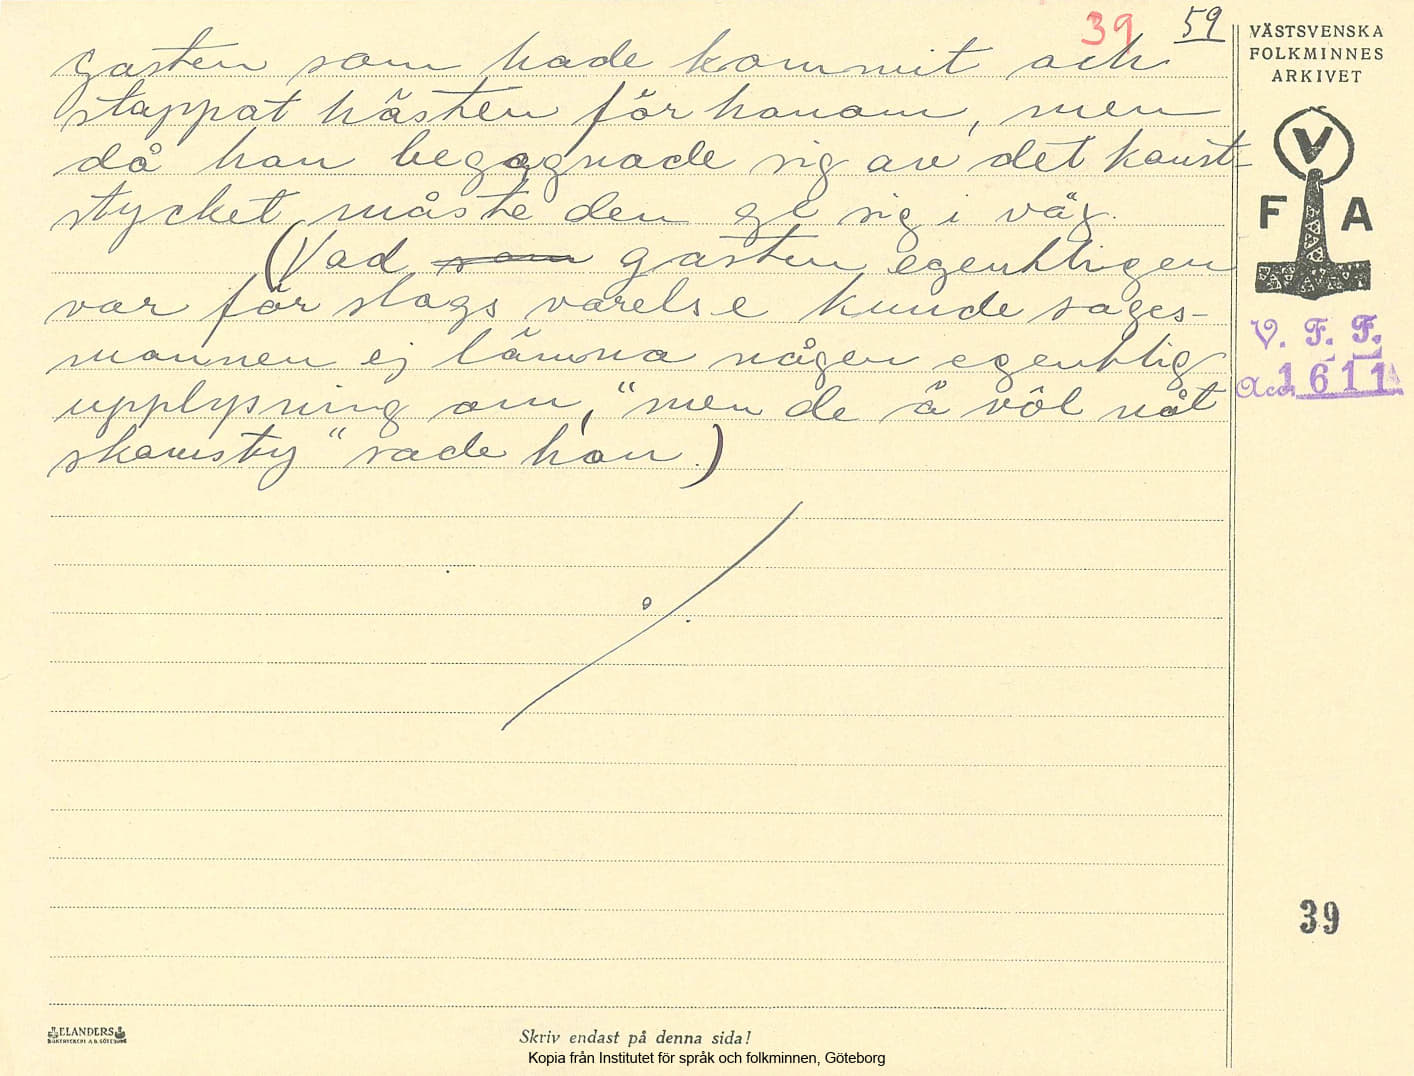 39 59
gasten som hade kommit och
stappat hästen för honom, men
då han begagnade sig av det konst-
stycket måste den ge sig i väg.
(Vad som gasten egentligen
var för slags varelse kunde sages-
mannen ej lämna någon egentlig
upplysning om, "men de ä vôl nåt
skamsty" sade han.)
VÄSTSVENSKA
FOLKMINNES
ARKIVET
V
F A
V. F. F.
Acc. 1611
39
ELANDERS
BOKTRYCKERI A.B. GÖTEBORG
Skriv endast på denna sida!
Kopia från Institutet för språk och folkminnen, Göteborg